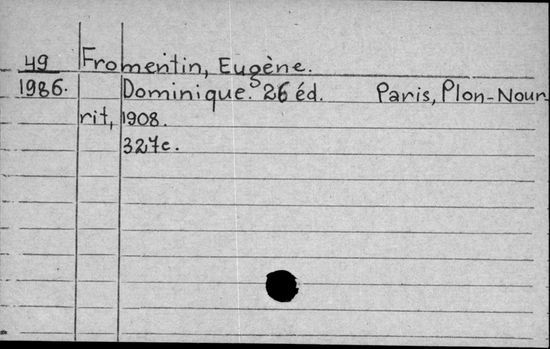 49 Fromentin, Eugène.
1986. Dominique. 26 éd. Paris, Plon-Nour
rit, 1908.
327c.